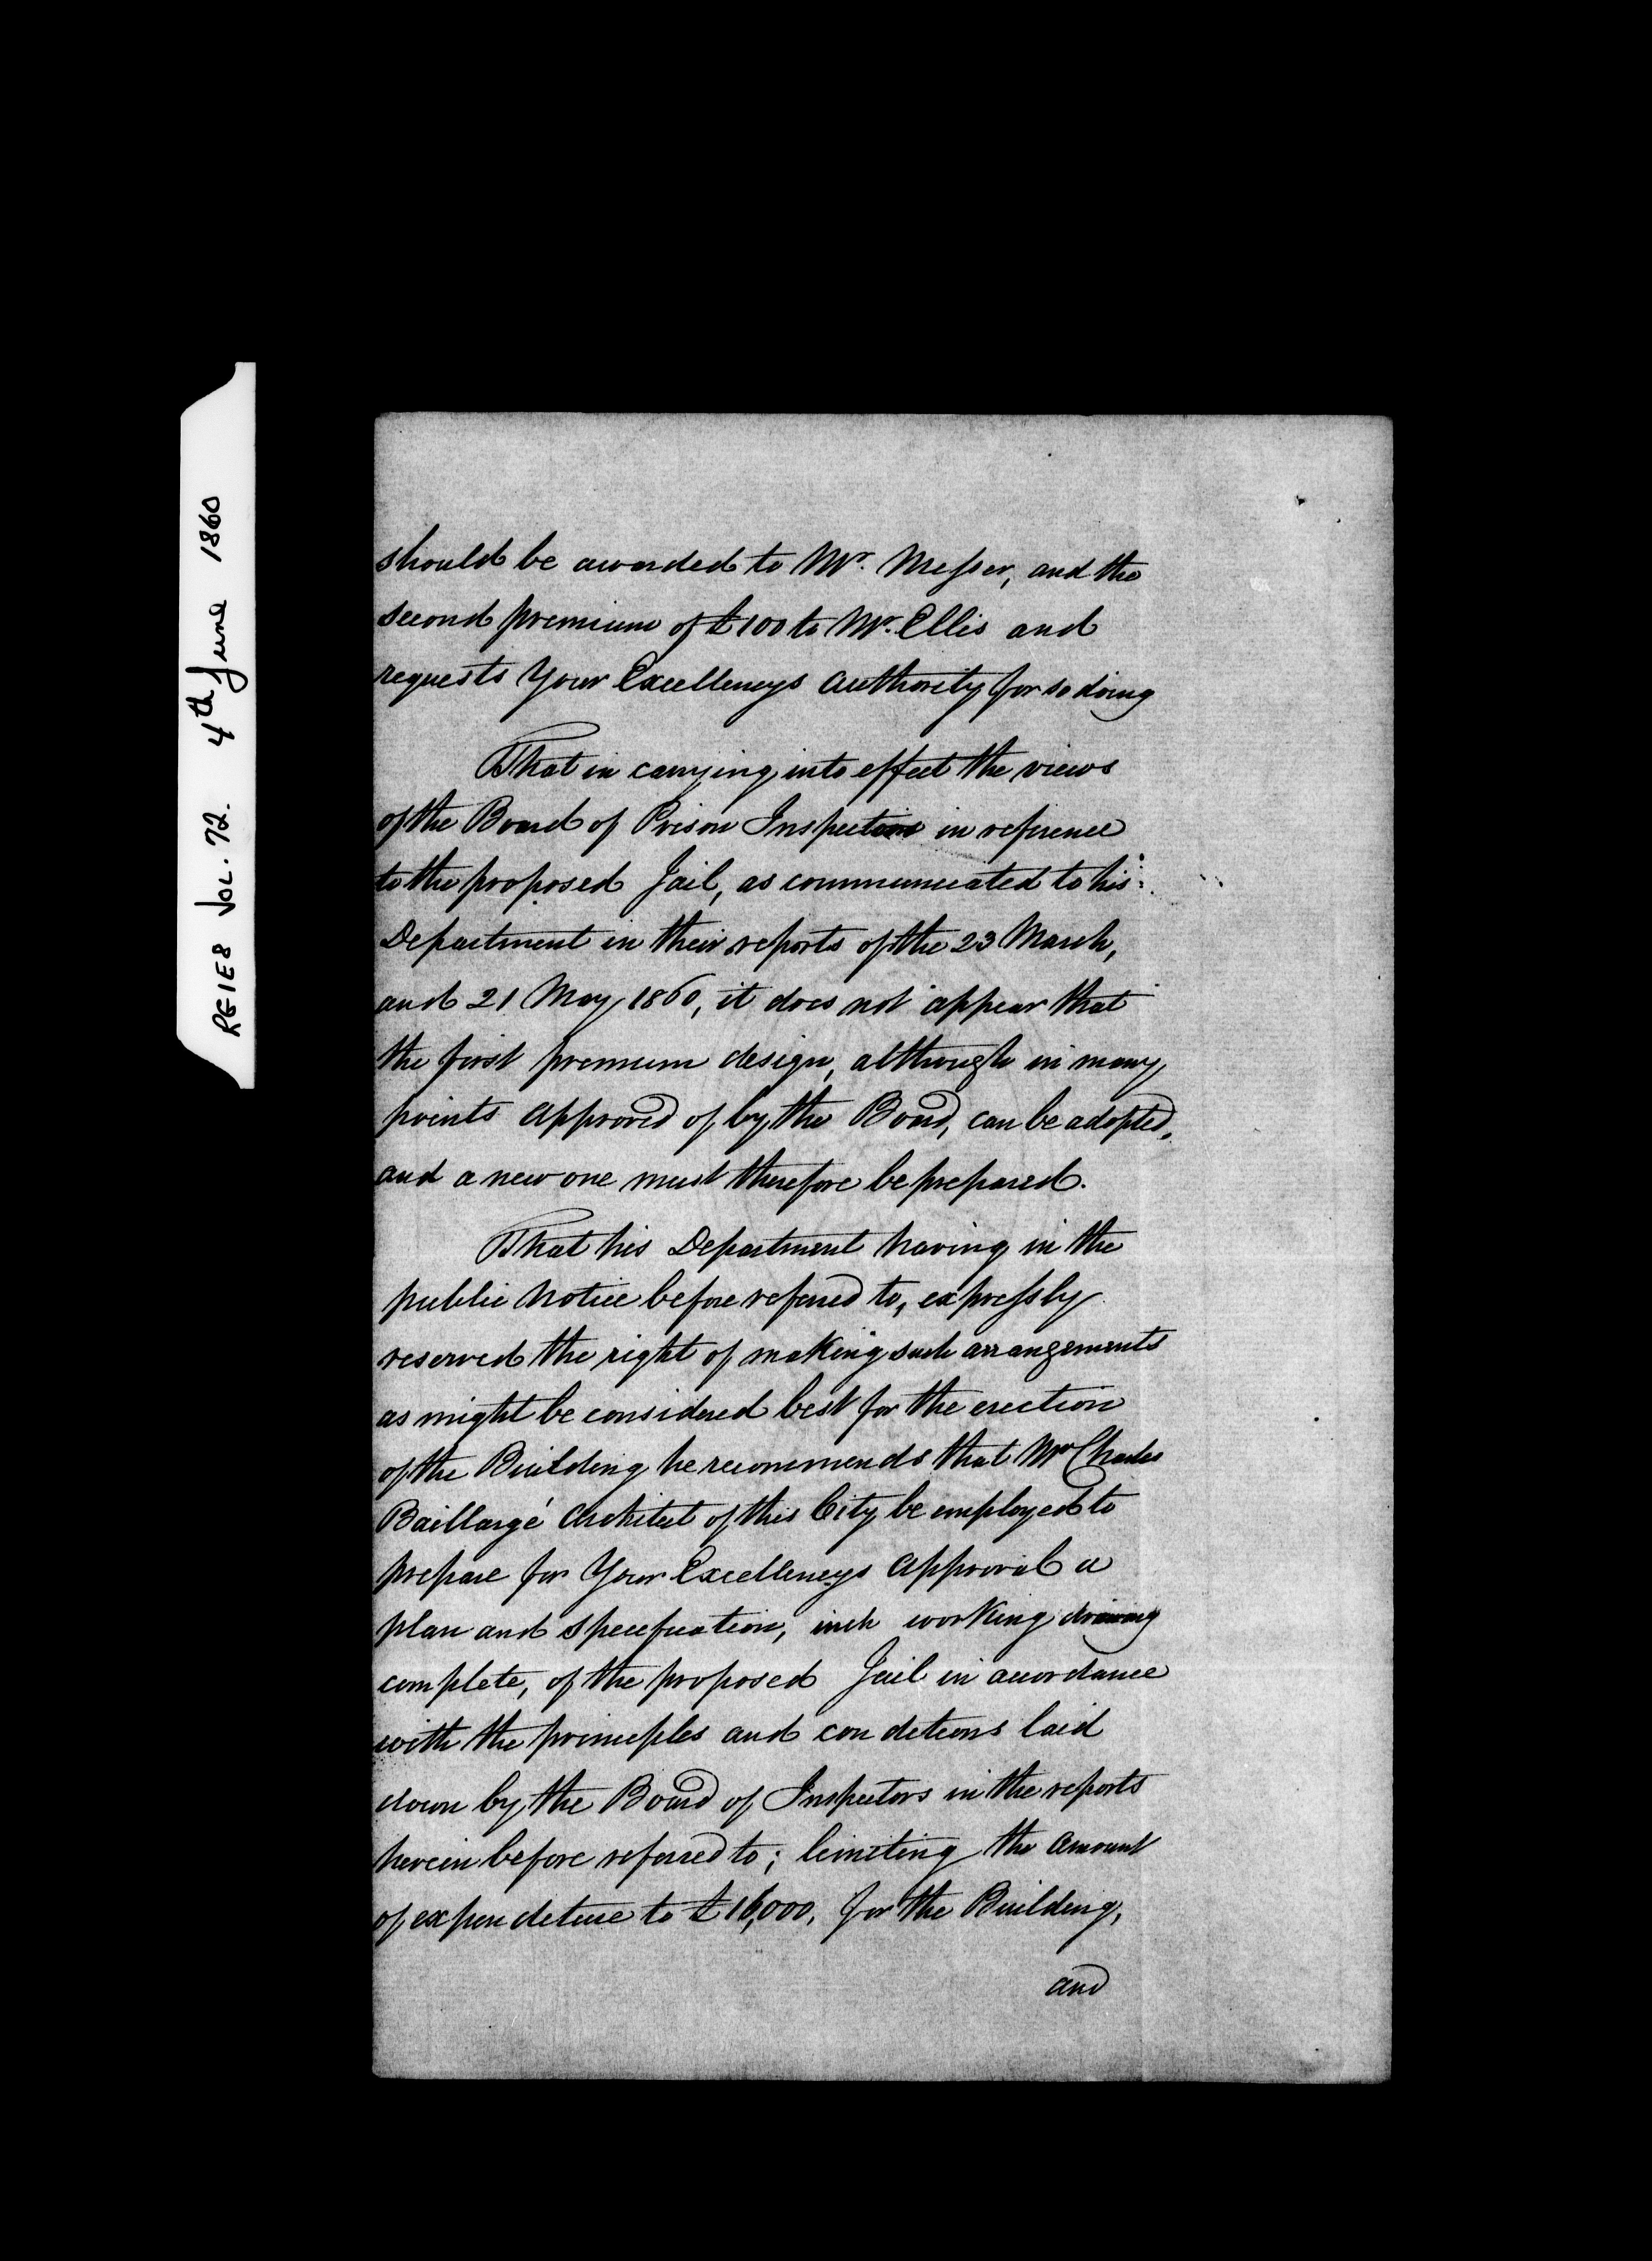 RG1E8 Vol. 72. 4th June 1860
should be awarded to Mr. Messer, and the
second premium of £100 to Mr. Ellis and
requests Your Excellencys authority for so doing
That in carrying into effect the views
of the Board of Prison Inspectors in reference
to the proposed Jail, as communicated to his
Department in their reports of the 23 March,
and 21 May 1860, it does not appear that
the first premium design, although in many
points approved of by the Board, can be adopted,
and a new one must therefore be prepared.
That his Department having in the
public notice before referred to, expressly
reserved the right of making such arrangements
as might be considered best for the erection
of the Building he recommends that Mr Charles
Baillargé Architect of this City be employed to
prepare for Your Excellencys approval a
plan and specification, working drawing
complete, of the proposed Jail in accordance
with the principles and conditions laid
down by the Board of Inspectors in the reports
herein before referred to; limiting the amount
of expenditure to £16,000, for the Building,
and